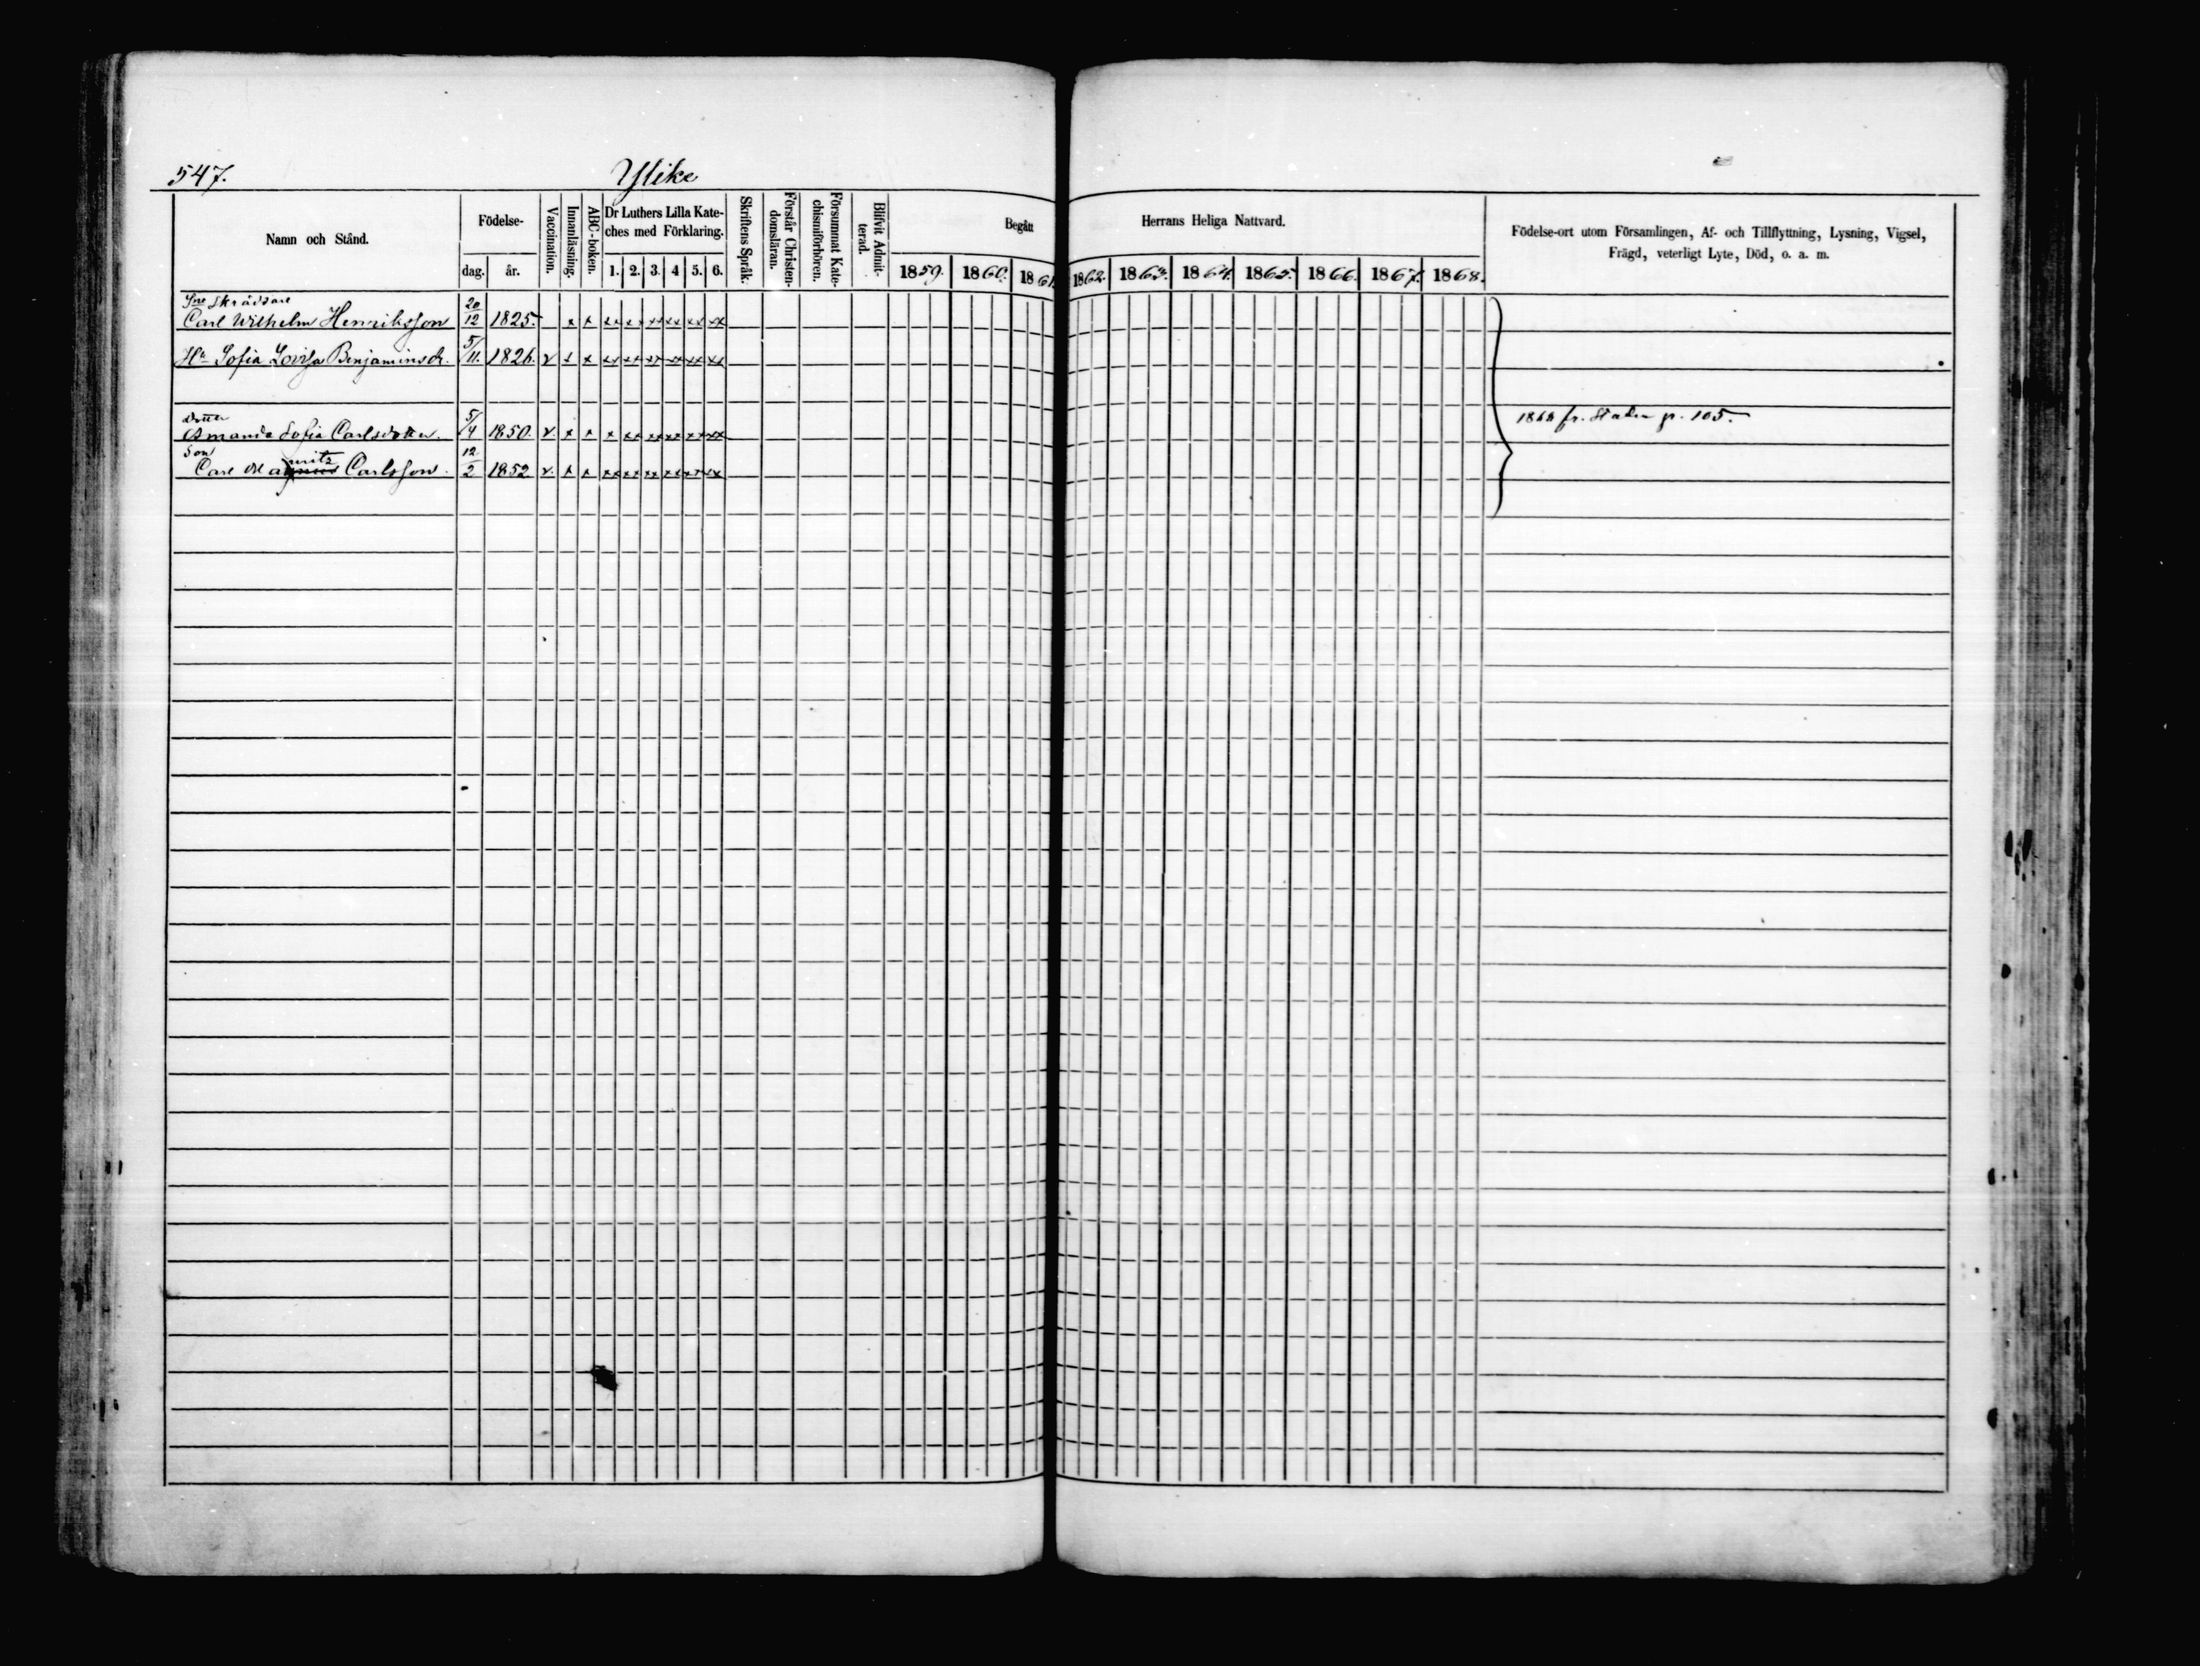 547.
Ylike
Namn och Stånd.
Födelse-
dag.
år.
Vaccination.
Innanläsning.
ABC-boken.
Dr Luthers Lilla Kate-
ches med Förklaring.
1. 2. 3. 4 5. 6.
Skriftens Språk.
Förstår Christen-
domsläran.
Försummat Kate-
chismiförhören.
Blifvit Admit-
terad.
Begått
Herrans Heliga Nattvard.
1859. 1860. 1861. 1862. 1863. 1864. 1865. 1866. 1867. 1868.
Födelse-ort utom Församlingen, Af- och Tillflyttning, Lysning, Vigsel,
Frägd, veterligt Lyte, Död, o. a. m.
Carl Wilhelm Henriksson 20/12 1825. x x xx xx xx xx xx xx
Hu Sofia Lovisa Benjaminsdr. 5/11. 1826. v x x xx xx xx xx xx xx
Dotter
Amanda Sofia Carlsdotter. 5/4 1850. v. x x x xx xx xx xx xx
1868 fr. Staden p. 105.
Son
Carl Carlsson. 12/2 1852. v. x x xx xx xx xx xx xx